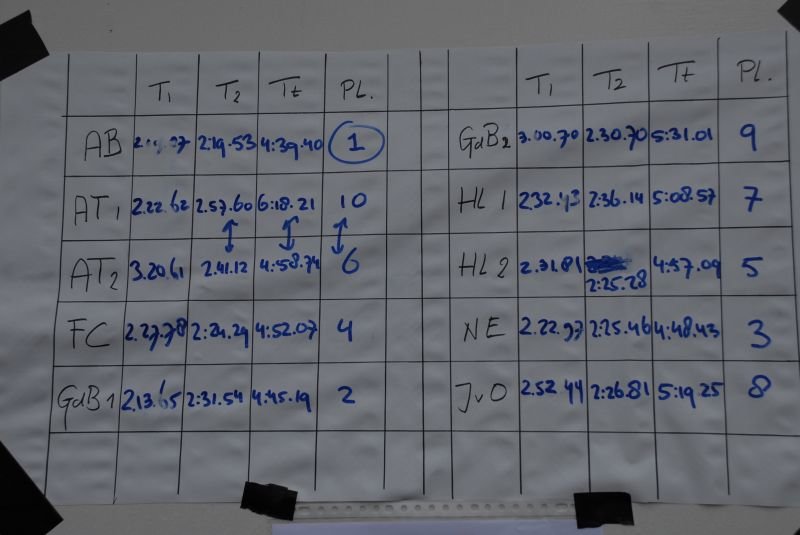 T1 T2 Tt PL. T1 T2 Tt PL.
AB 2:19.53 4:39.40 1 GdB2 3.00.70 2.30.70 5:31.01 9
AT1 2.22.62 2.57.60 6:18.21 10 HL 1 232.43 2:36.14 5:08.57 7
AT2 3.20.61 2.41.12 4:58.74 6 HL 2 2.31.81 2:25.28 4:57.09 5
FC 2.27.78 2:24.29 4:52.07 4 NE 2.22.97 2:25.46 4:48.43 3
GdB1 2.13.65 2:31.54 4:45.19 2 JvO 2.52.44 2:26.81 5:19.25 8